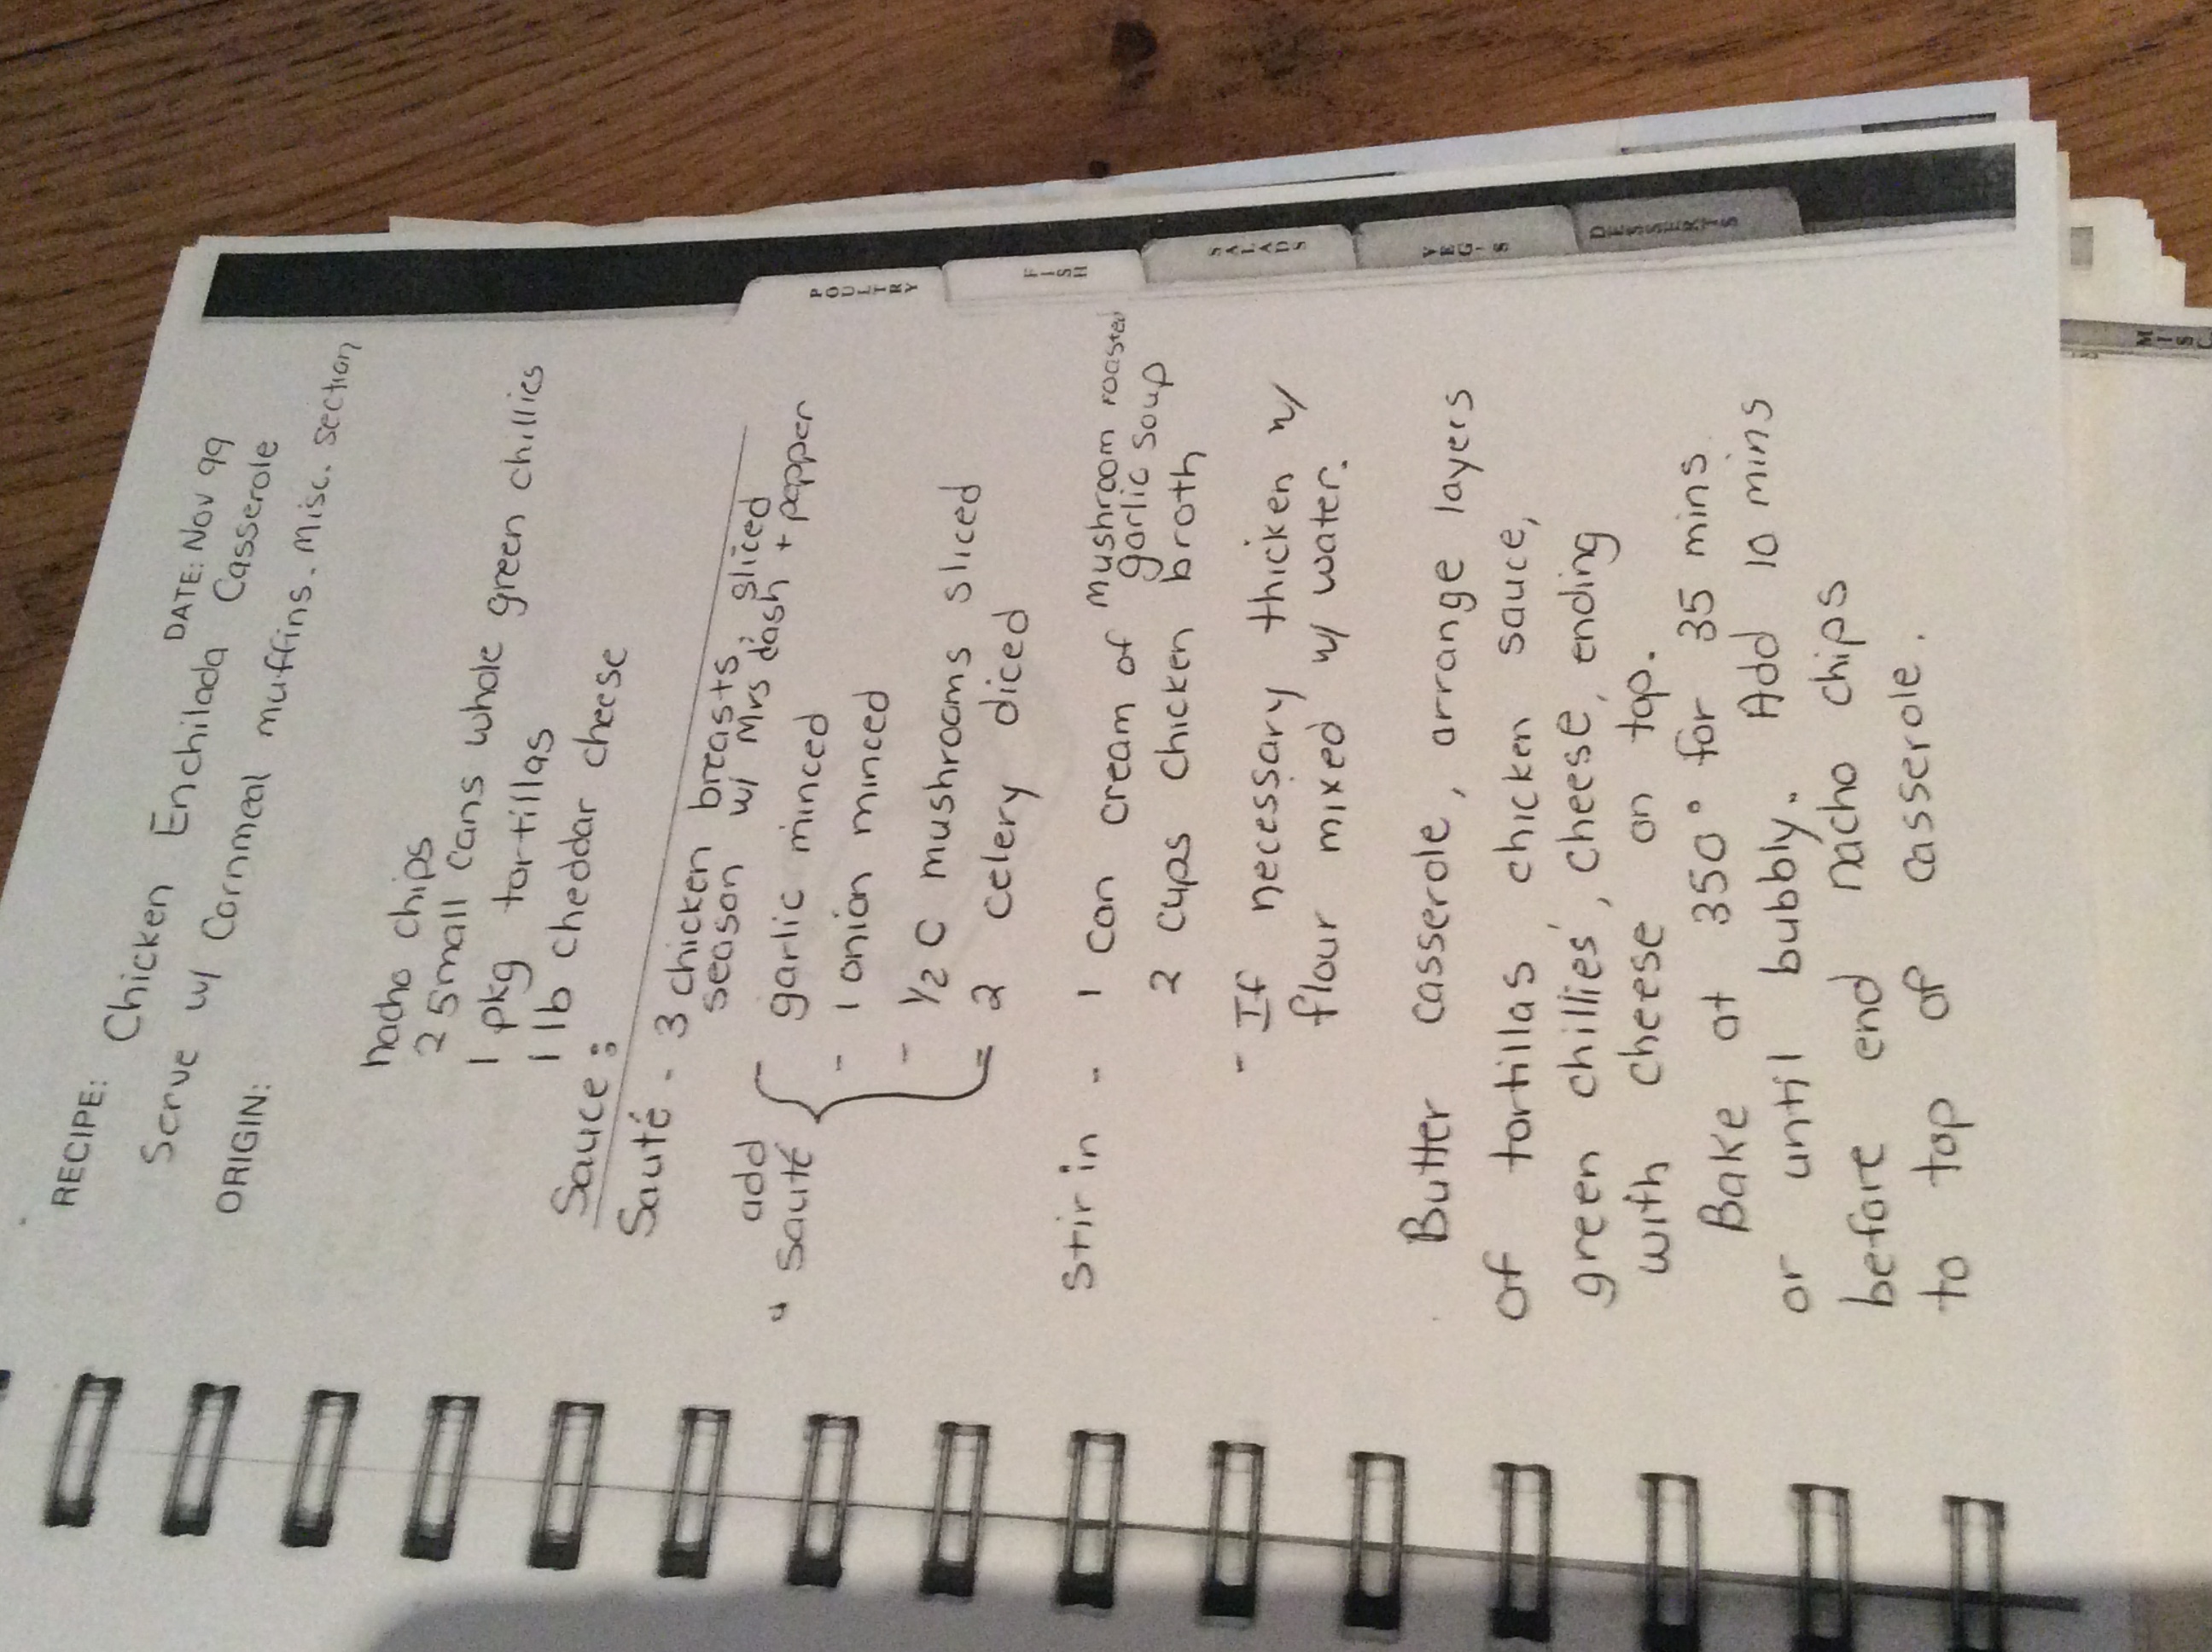 RECIPE: DATE: Nov 99
Chicken Enchilada Casserole
Serve w/ Cornmeal muffins. Misc. section
ORIGIN:
nacho chips
2 small cans whole green chillies
1 pkg tortillas
1 lb cheddar cheese
Sauce:
Sauté - 3 chicken breasts, sliced
season w/ Mrs dash + pepper
add
" sauté { garlic minced
- 1 onion minced
- 1/2 C mushrooms sliced
2 celery diced
Stir in - 1 can cream of mushroom roasted
garlic soup
2 cups chicken broth
- If necessary thicken w/
flour mixed w/ water.
Butter casserole, arrange layers
of tortillas, chicken sauce,
green chillies, cheese, ending
with cheese on top.
Bake at 350° for 35 mins
or until bubbly. Add 10 mins
before end nacho chips
to top of casserole.
POULTRY
FISH
SALADS
VEGIS
DESSERTS
MISC